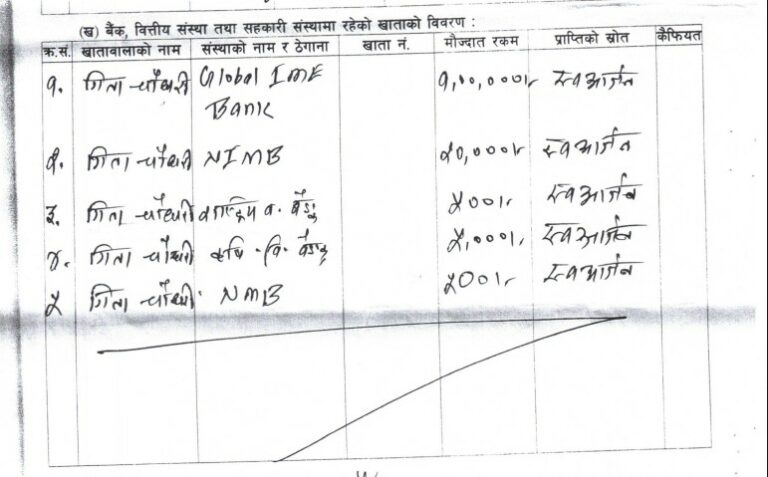 (ख) बैंक, वित्तीय संस्था तथा सहकारी संस्थामा रहेको खाताको विवरण :
क्र.सं. खातावालाको नाम संस्थाको नाम र ठेगाना खाता नं. मौज्दात रकम प्राप्तिको स्रोत कैफियत
१. गिता चौधरी Global IME १,००,०००।- स्वआर्जन
Bank
२. गिता चौधरी NIMB ५०,०००।- स्वआर्जन
३. गिता चौधरी वाणिज्य व. बैङ्क ५००।- स्वआर्जन
४. गिता चौधरी कृषि .वि. बैङ्क ५,०००।- स्वआर्जन
५ गिता चौधरी NMB ५००।- स्वआर्जन